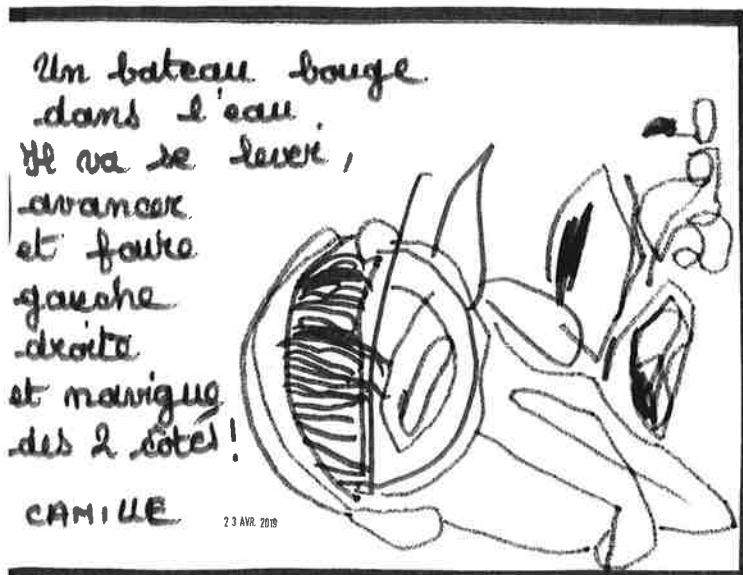 Un bateau bouge
dans l'eau
Il va se lever,
avancer
et faire
gauche
droite
et navigue
des 2 cotés!
CAMILLE
23 AVR. 2019